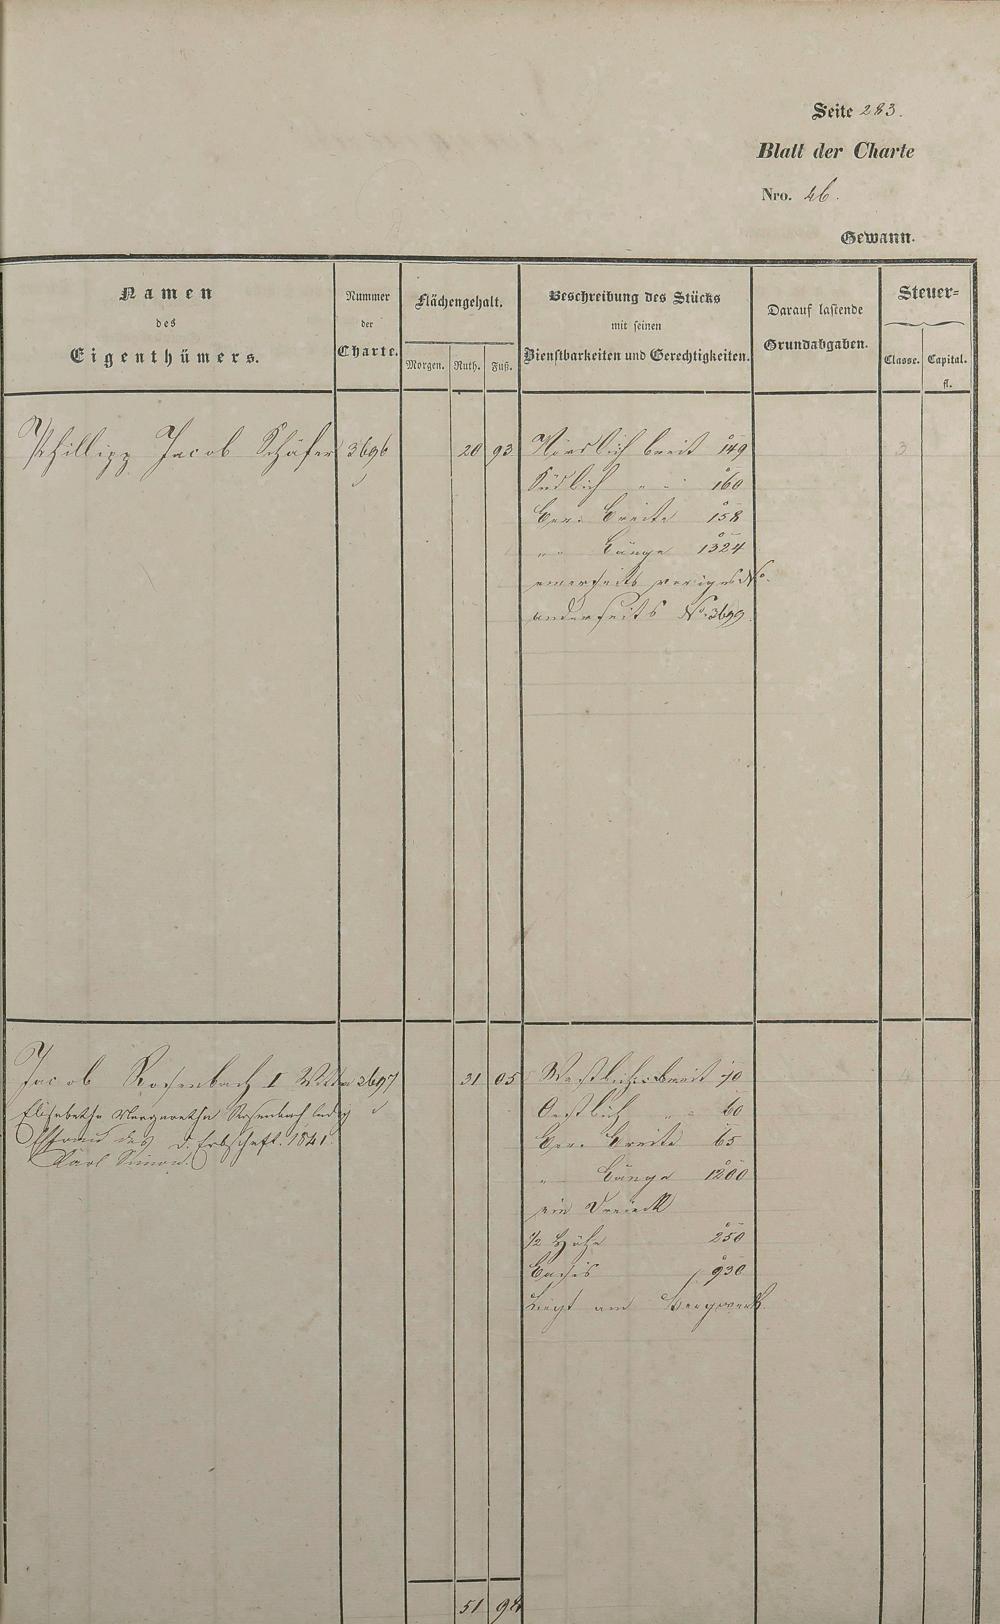 Seite 283.
Blatt der Charte
Nro. 46.
Gewann.
Namen
des
Eigenthümers.
Nummer
der
Charte.
Flächengehalt.
Morgen. Ruth. Fuß.
Beschreibung des Stücks
mit seinen
Dienstbarkeiten und Gerechtigkeiten.
Darauf lastende
Grundabgaben.
Steuer=
Classe. Capital.
fl.
Phillipp Jacob Schäfer 3696 20 93 Nördlich breit 149 3
Südlich " " 160
Ger: Breite 158
" " Länge 1324
einerseits voriges No.
anderseits No. 3699
Jacob Rosenbach I Wittw 3697 31 05 Westlich breit 70 4
Elisabetha Margaretha Rosenbach ledig
Oestlich " " 60
des d. Erbschaft. 1841.
Ger: Breite 65
Karl Simon.
" Länge 1200
ein Dreieck
1/2 Höhe 250
Basis 930
Liegt am Bergwerk
51 98